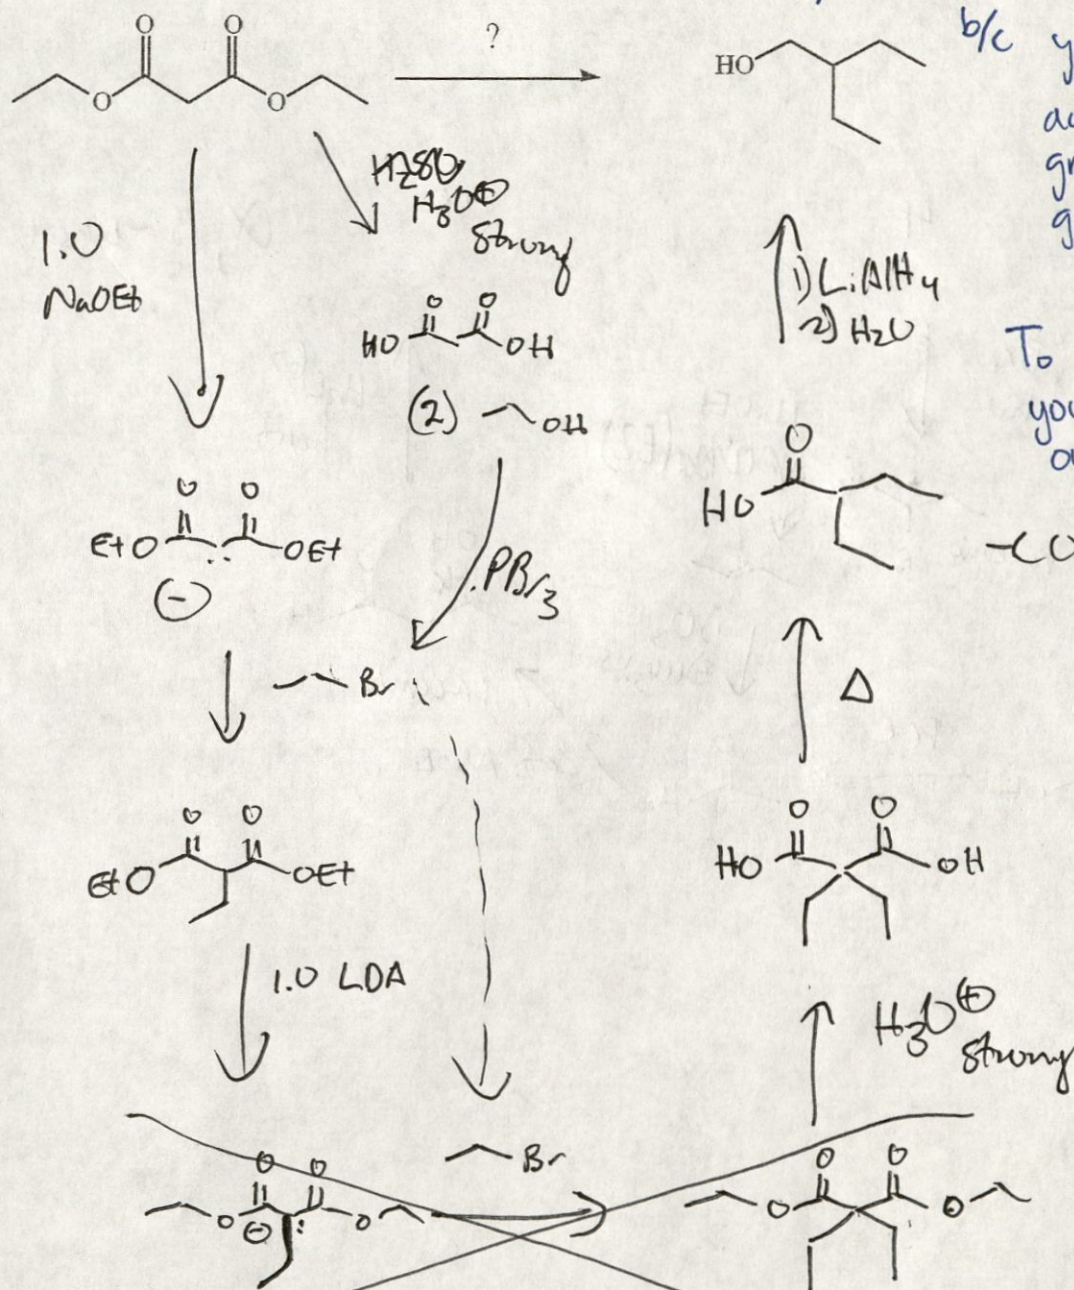 O O
O O
?
HO
b/c y
1.0
NaOEt
H2SO
H3O⊕
Strong
O O
HO OH
(2) OH
1) LiAlH4
2) H2O
To
you
O
HO
-CO
O O
EtO OEt
(-)
PBr3
Br
Δ
O O
EtO OEt
O O
HO OH
1.0 LDA
H3O⊕
Strong
Br
O O
O ⊖ : O
O O
O O